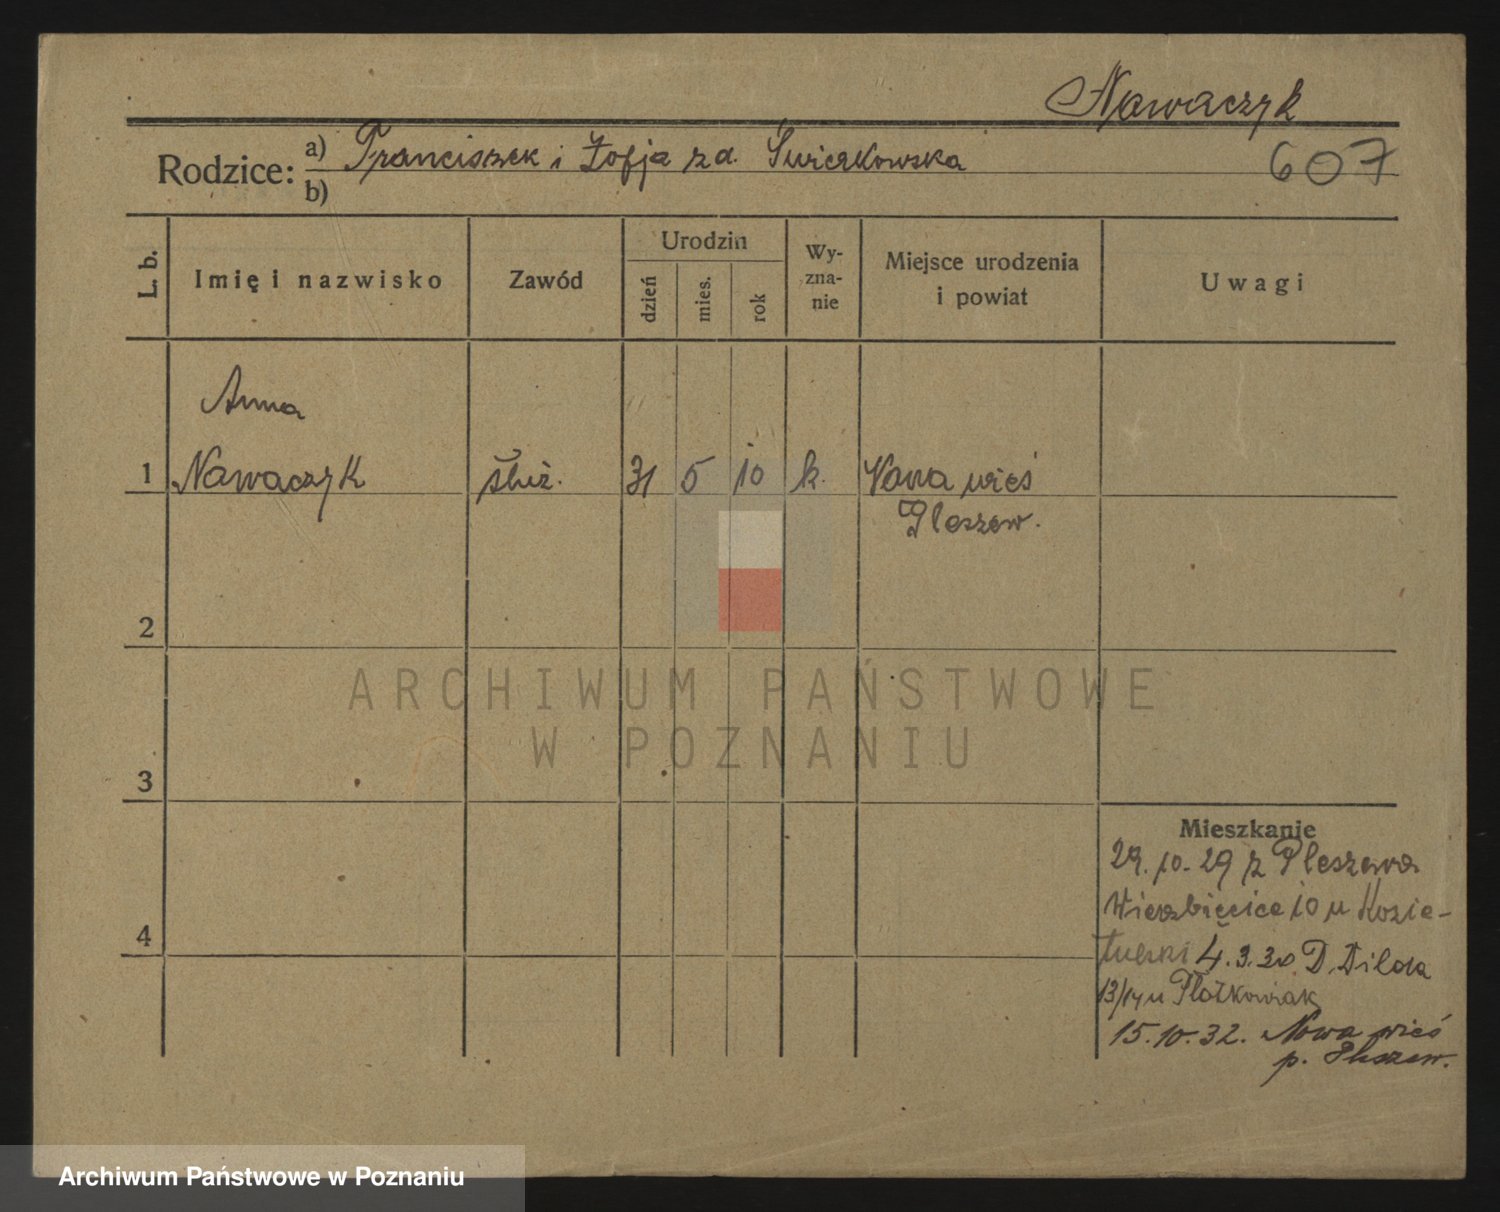 Nawaczyk
Rodzice: a) Franciszek i Zofja zd. Świerkowska
b)
607
L. b.
Imię i nazwisko
Zawód
Urodzin
dzień
mies.
rok
Wy-
zna-
nie
Miejsce urodzenia
i powiat
Uwagi
Anna
1 Nawaczyk służ. 31 5 10 k. Nowa wieś
Pleszew.
2
3
4
Mieszkanie
29.10.29 z Pleszewa
Wierzbięcice 10 u Kozie-
tulski 4.3.30 D. Wilda
13/14 u
15.10.32. Nowa wieś
p. Pleszew.
ARCHIWUM PAŃSTWOWE
W POZNANIU
Archiwum Państwowe w Poznaniu